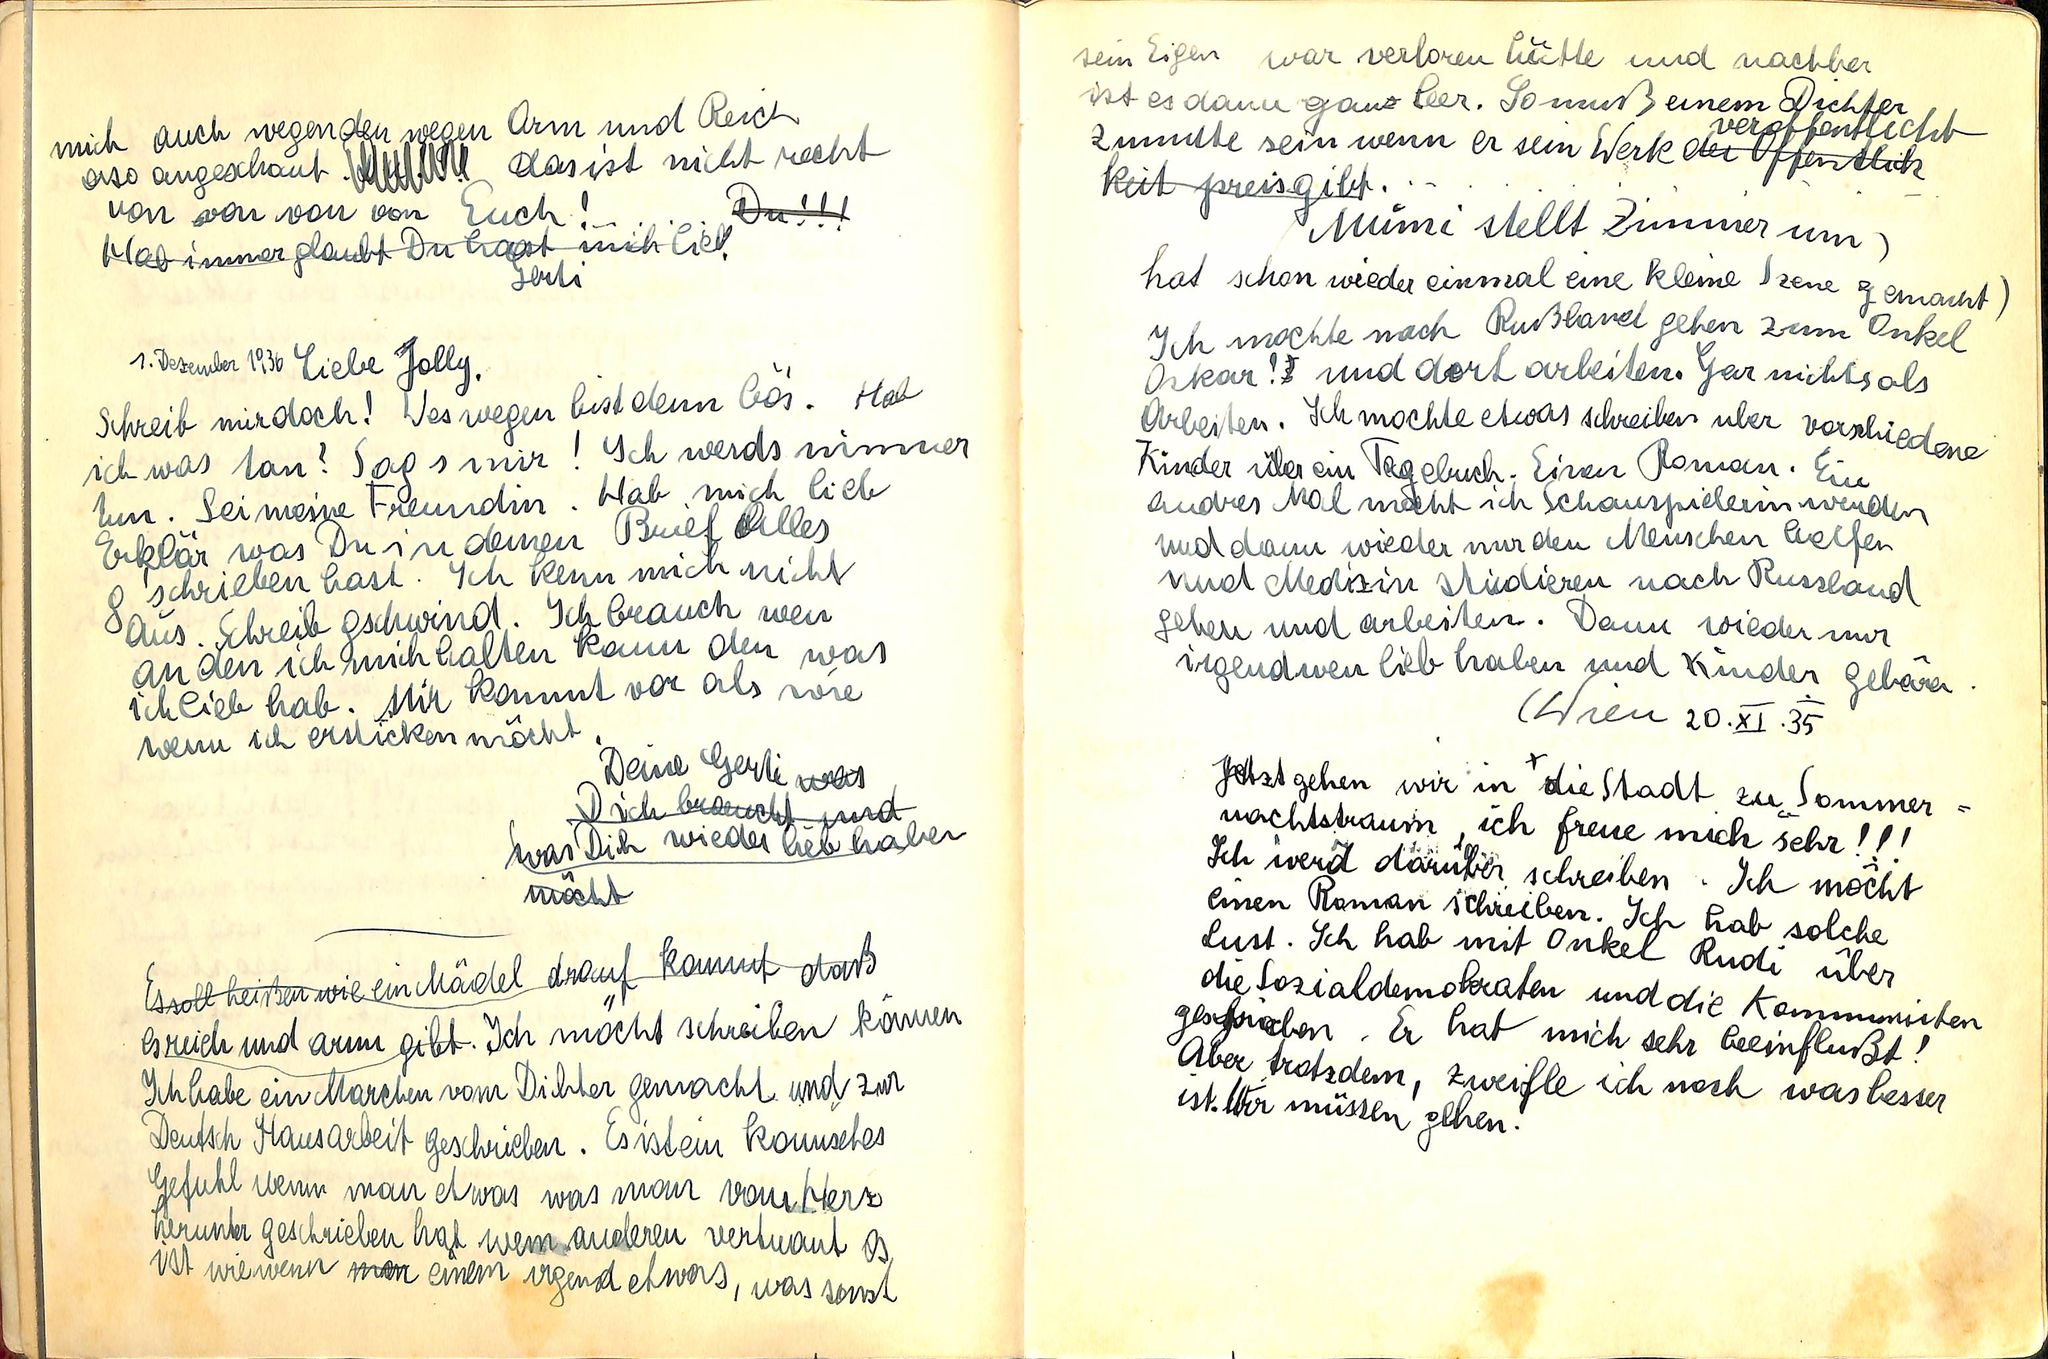 mich auch wegen den wegen Arm und Reich
aso angeschaut. das ist nicht recht
von von von von Euch! Du!!!
Hab immer glaubt Du hast mich lieb.
Gerti
1. Dezember 1936 Liebe Jolly.
Schreib mir doch! Weswegen bist denn bös. Hab
ich was tan? Sag s mir! Ich werds nimmer
tun. Sei meine Freundin. Hab mich lieb
Erklär was Du in deinen Brief alles
g'schrieben hast. Ich kenn mich nicht
aus. Schreib gschwind. Ich brauch wen
an den ich mich halten kann den was
ich lieb hab. Mir kommt vor als wie
wenn ich ersticken möcht.
Deine Gerti was
Dich braucht und
was Dich wieder lieb haben
möcht
Es soll heißen wie ein Mädel drauf kommt daß
es reich und arm gibt. Ich möcht schreiben können
Ich habe ein Marchen vom Dichter gemacht und zur
Deutsch Hausarbeit geschrieben. Es ist ein komisches
Gefuhl wenn man etwas was man vom Herz
herunter geschrieben hat wem anderen vertraut Es
ist wie wenn man einem irgend etwas, was sonst
sein Eigen war verloren hätte und nachher
ist es dann ganz leer. So muß einem Dichter
veröffentlicht
zumute sein wenn er sein Werk der Öffentlich
keit preisgibt.
Mumi stellt Zimmer um)
hat schon wieder einmal eine kleine Szene gemacht)
Ich mochte nach Rußland gehen zum Onkel
Oskar! und dort arbeiten. Gar nichts als
Arbeiten. Ich mochte etwas schreiben uber vorschiedene
Kinder über ein Tagebuch. Einen Roman. Ein
andres Mal möcht ich Schauspielerin werden
und dann wieder nur den Menschen helfen
und Medizin studieren nach Russland
gehen und arbeiten. Dann wieder nur
irgendwen lieb haben und Kinder gebären.
(Wien 20.XI.35
Jetzt gehen wir in die Stadt zu Sommer=
nachtstraum, ich freue mich sehr!!!
Ich werd darüber schreiben. Ich möcht
einen Roman schreiben. Ich hab solche
Lust. Ich hab mit Onkel Rudi über
die Sozialdemokraten und die Kommunisten
gesprochen. Er hat mich sehr beeinflußt!
Aber trotzdem, zweifle ich noch was besser
ist. Wir müssen gehen.